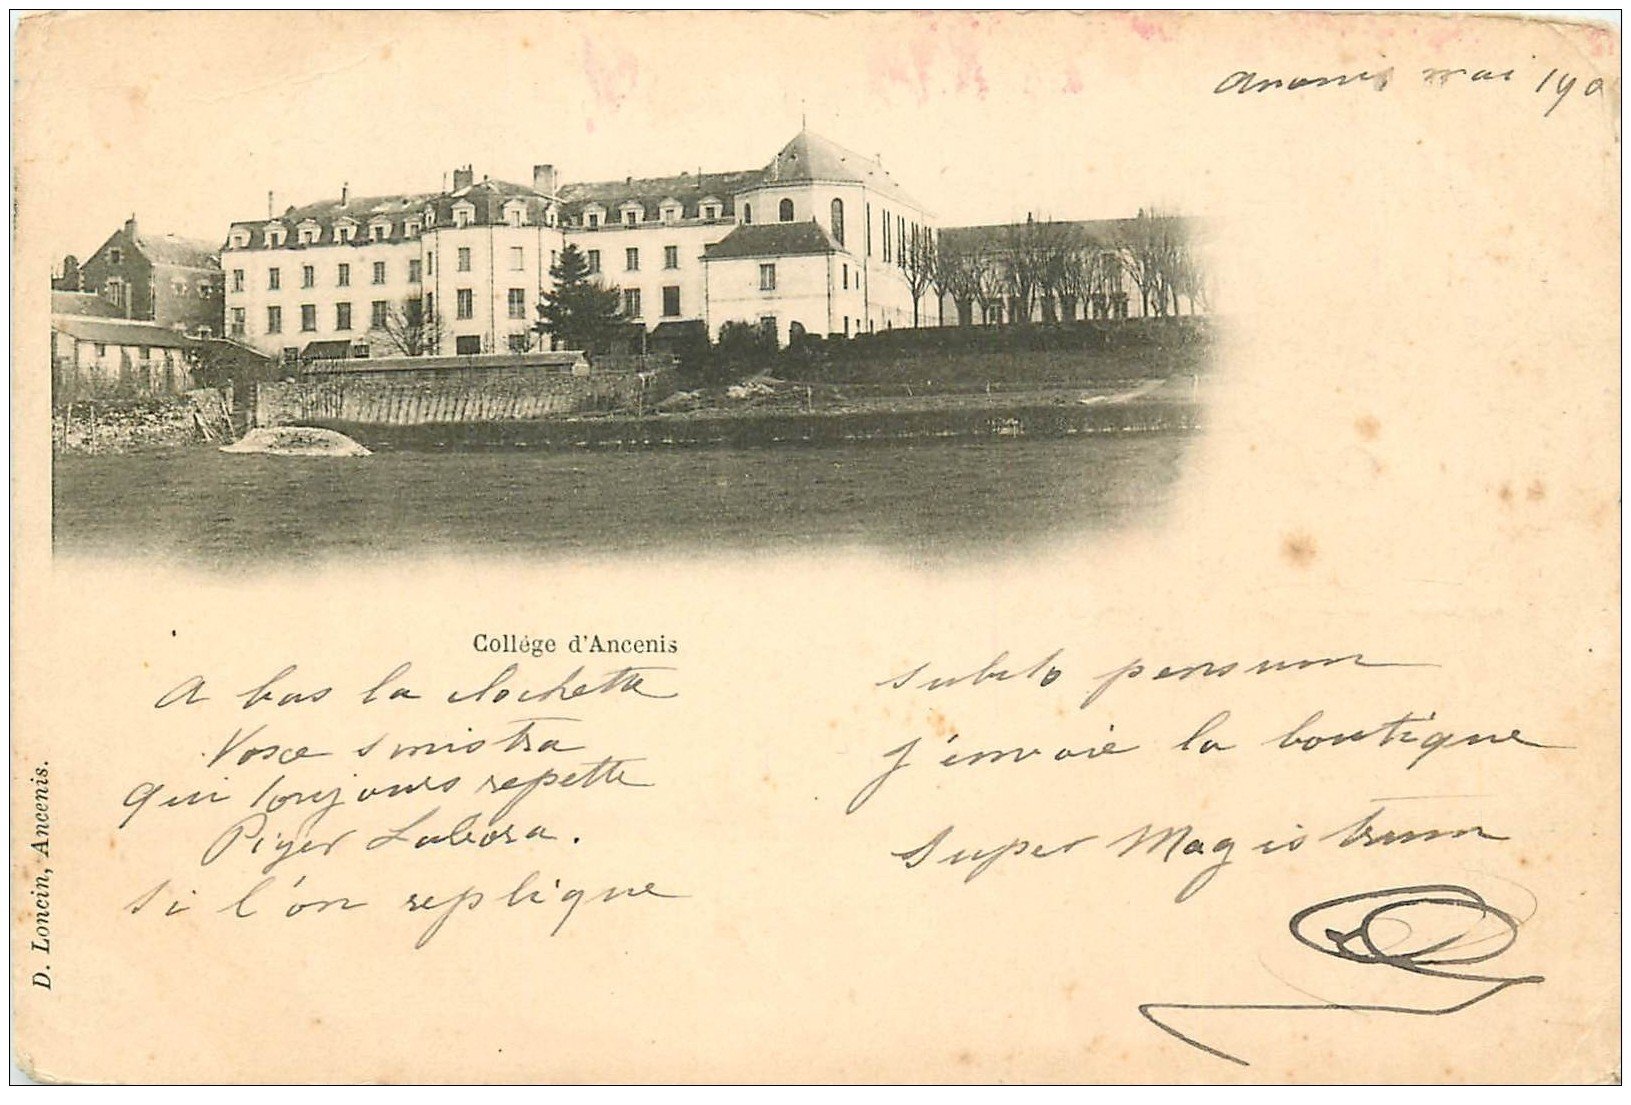 Ancenis mai 190
Collége d'Ancenis
A bas la clochette
Voxe sinistra
qui toujours repette
Piger Labora.
Si l'on replique
subito pensum
J'envoie la boutique
super Magistrum
D. Loncin, Ancenis.